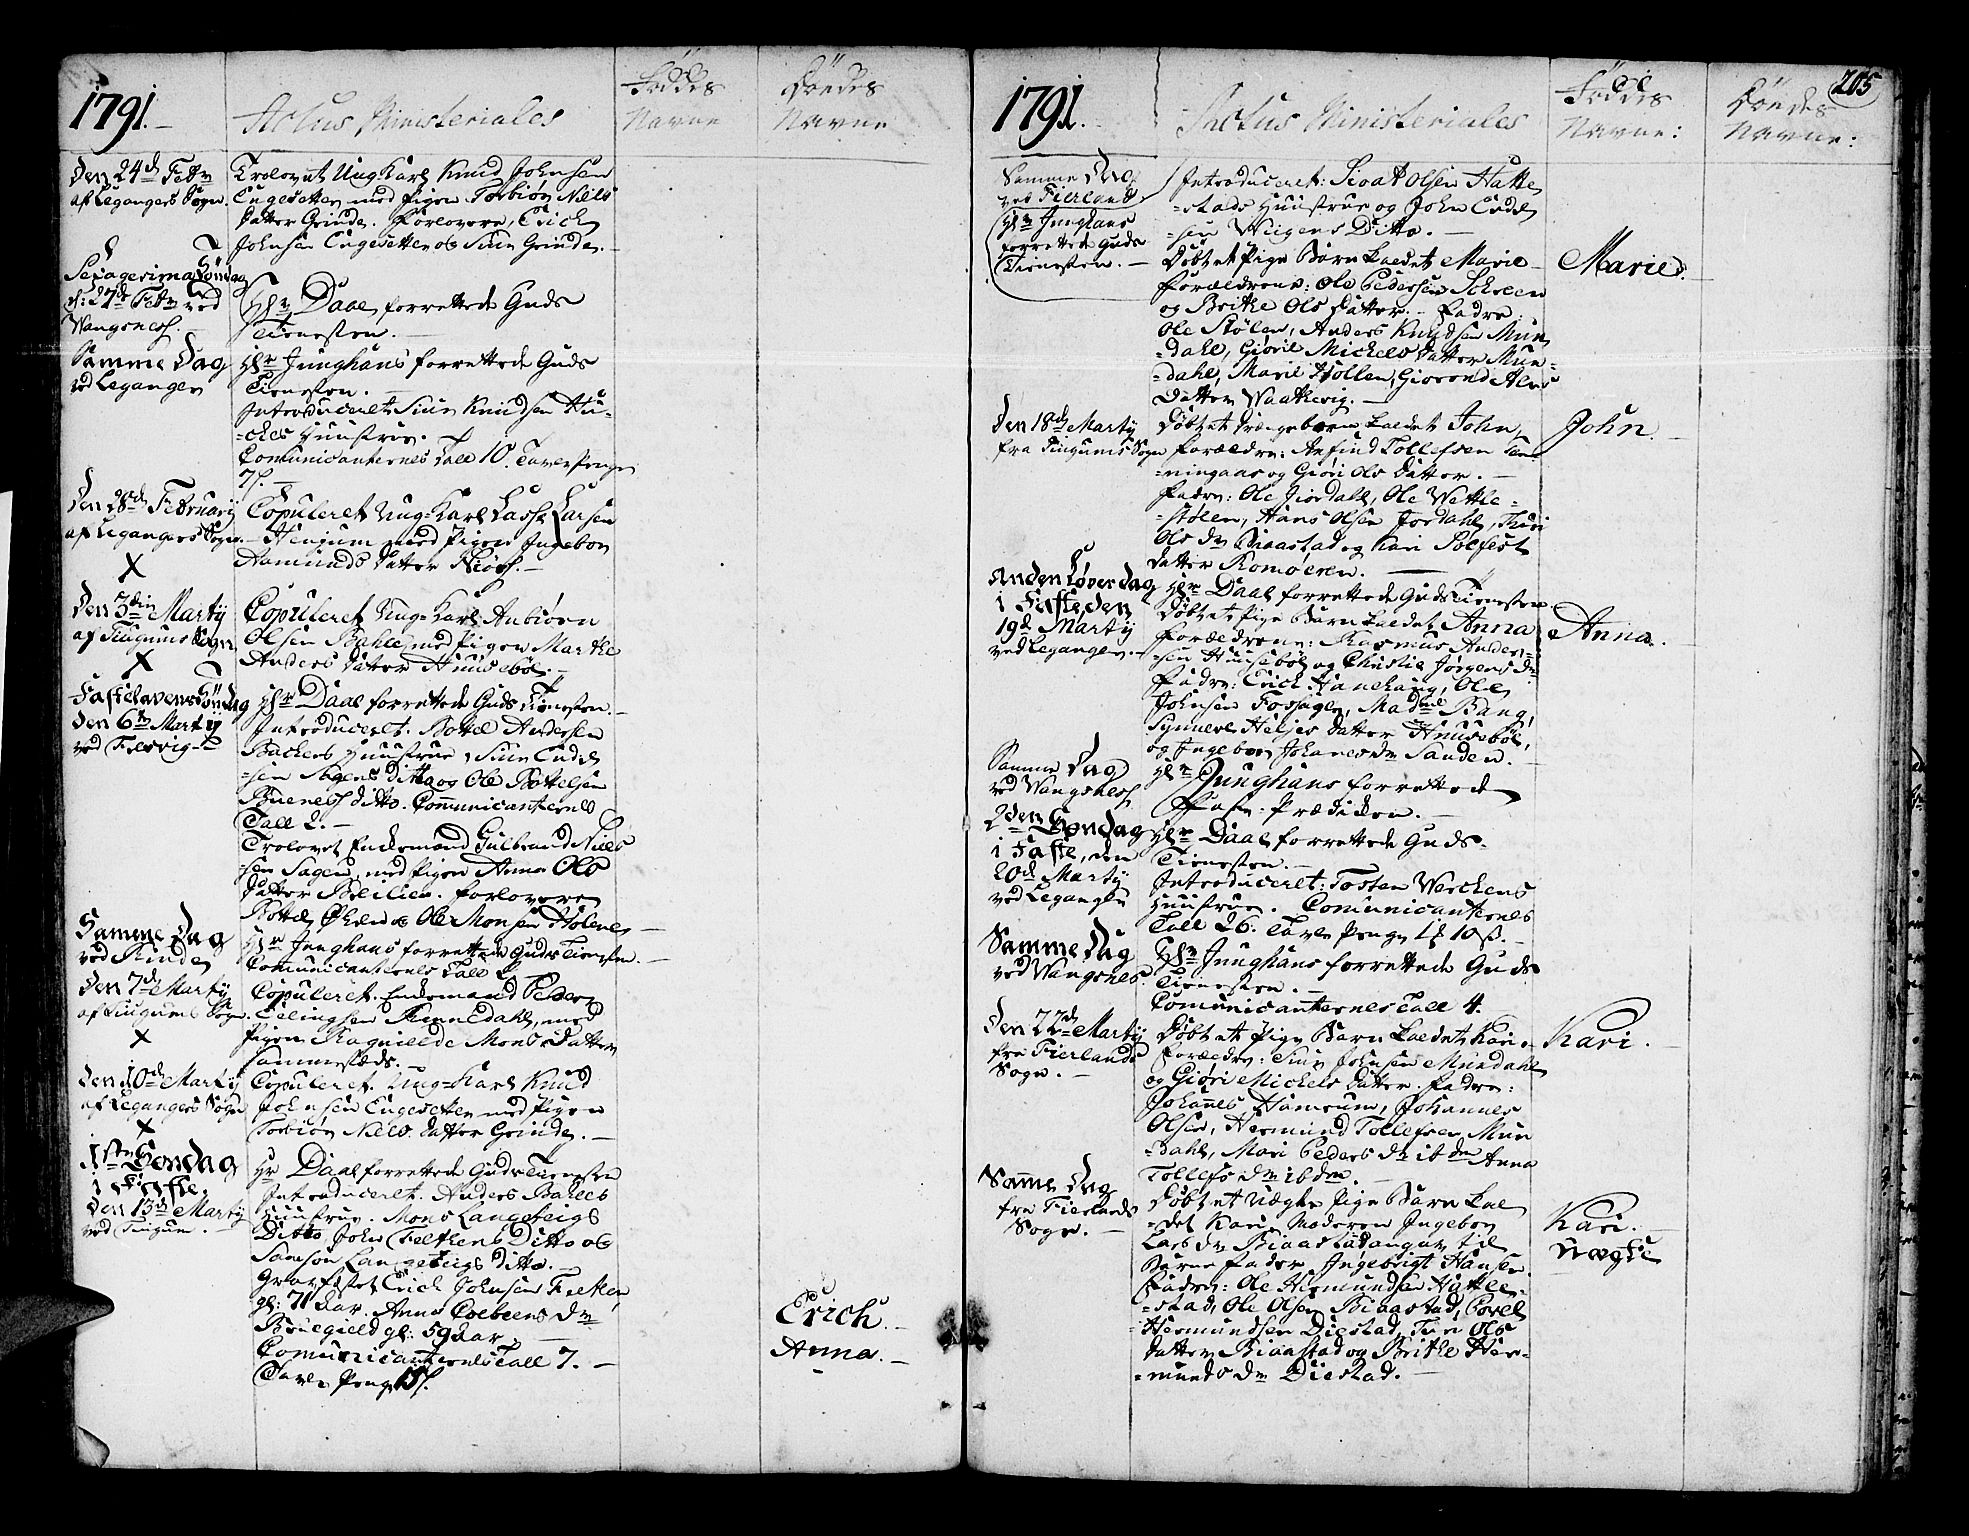 1791.
Actus Ministeriales
Föddes
Navne
Döedes
Navne
Den 24de Febr
af Legangers Sogn.
Trolovet Ung Karl Knud Johnsen
Engesetten med Pigen Torbiör Niels
Datter Grinde. Forlovere, Erich
Johnsen Engesetten og Siur Grinde.
Sexagesima Söndag
d: 27de Febr ved
Wangsness.
Hr Daae forrettede Guds
Tienesten.
Samme Dag
ved Leganger
Hr Junghans forrettede Guds
Tienesten.
Introduceret Siur Knudsen Hu-
Huustrue.
Comunicanternes Tall 10. Tavle Penge
7 s.
Den 28de February
af Legangers Sogn.
X
Copuleret Ung-Karl Lasse Larsen
Henjum med Pigen Ingebor
Aamunds Datter Niöss.
Den 3die Marty
af Tiugums Sogn
X
Copuleret Ung-Karl Anbiörn
Olsen Bahle, med Pigen Marthe
Anders Datter Huuseböe.
Fastelavens Söndag
den 6te Marty
ved Fresvig
Hr Daae forrettede Guds Tienesten.
Introduceret. Bottel Andersen
Backens Huustrue, Siur
-sen Sagens ditto og Ole Bottelsen
ditto. Communicanternes
Tall 2.
Trolovet Enkemand Gulbrand Niels
-sen Sagen, med Pigen Anna Ols
Datter. Forlovere
Bottel og Ole Monsen Holene
Samme Dag
ved Rinde
Hr Junghans forrettede Guds Tienesten.
Comunicanternes Tall
Den 7de Marty
af Tiugums Sogn.
X
Copuleret. Enkemand Peder
Ellingsen Dahl, med
Pigen Ragnilde Mons Datter
sammesteds.
Den 10de Marty
af Legangers Sogn
X
Copuleret. Ung-Karl Knud
Johnsen Engesetten med Pigen
Torbiör Niels Datter Grinde.
1ste Söndag
i Faste,
den 13de Marty
ved Tiugum.
Hr Daae forrettede Guds Tienesten
Introduceret. Anders Bahles
Huustrue. Mons Langeteigs
Ditto, John Felthens Ditto og
Samson Langeteigs ditto.
Gravfestet Erich Johnsen
gl: 71 Aar. Anna Colbeens Dr
gl: 59 Aar.
Comunicanternes Tall 7.
Tavle Penge 15 s.
Erich.
Anna.
205
1791.
Actus Ministeriales
Föddes
Navne:
Döedes
Navne:
Samme Dag
ved Fierland
Hr Junghans
forrettede Guds
Tienesten.
Introduceret: Sivat Olsen Hatte
-stads Huustrue og John
-sen Ditto.
Döbt et Pige Barn kaldet Marie
Forældrene: Ole Pedersen
og Brithe Ols Datter. Fadre
Ole Stölen, Anders Knudsen Mun
-dahl, Giöril Michels Datter Mun-
-dahl, Marie Hollen,
Datter Waathevig.
Marie.
Den 18de Marty
fra Tiugums Sogn
Döbt et Drengebarn kaldet John,
Forældre: Anfind Tollefsen
-ningaas og Giöri Ols Datter.
Fadre: Ole Jordahl, Ole Wetle-
-stölen, Hans Olsen Jordahl, Thuri
Ols Dr Biaastad og Kari Solfest
Datter Romören.
John.
Anden Löverdag
i Faste, den
19de Marty
ved Leganger.
Hr Daae forrettede Guds Tienesten.
Döbt et Pige Barn kaldet Anna
Forældrene: Rasmus Ander-
-sen Huuseböe og Christie Jörgens Dr
Fadre: Erich Hanehaug, Ole
Johnsen Fossagen, Madme Bang,
Synneve Helges Datter Huuseböe,
og Ingebor Johanes Dr Sanden.
Anna.
Samme Dag
ved Wangsness
Hr Junghans forrettede
Faste-Prædiken.
2den Söndag
i Faste, den
20de Marty
ved Leganger
Hr Daae forrettede Guds-
Tienesten.
Introduceret: Tosten Werchens
Huustrue. Comunicanternes
Tall 26. Tavle Penge 1 10 s.
Samme Dag
ved Wangsnes.
Hr Junghans forrettede Guds
Tienesten.
Comunicanternes Tall 4.
Den 22de Marty
fra Fierlands
Sogn.
Döbt et Pige Barn kaldet Kari.
Forældre: Siur Johnsen Mundahl
og Giöri Michels Datter. Fadre:
Johannes Hamrum, Johannes
Olsen, Hermund Tollefsen Mun
-dahl, Mari Peders Dr ibdm Anna
Tollefs Dr ibdm.
Kari.
Samme Dag
fra Fierlands
Sogn.
Döbt et Uægte Pige Barn kal
-det Kari. Moderen Ingebor
Lars Dr Biaastad angav til
Barne Fader Ingebrigt Hansen
Fadre: Ole Hermundsen Hatte-
-stad, Ole Olsen Biaastad, Povel
Hermundsen Diestad, Ols
Datter Biaastad og Brithe Her-
-munds Dr Diestad.
Kari.
Uægte